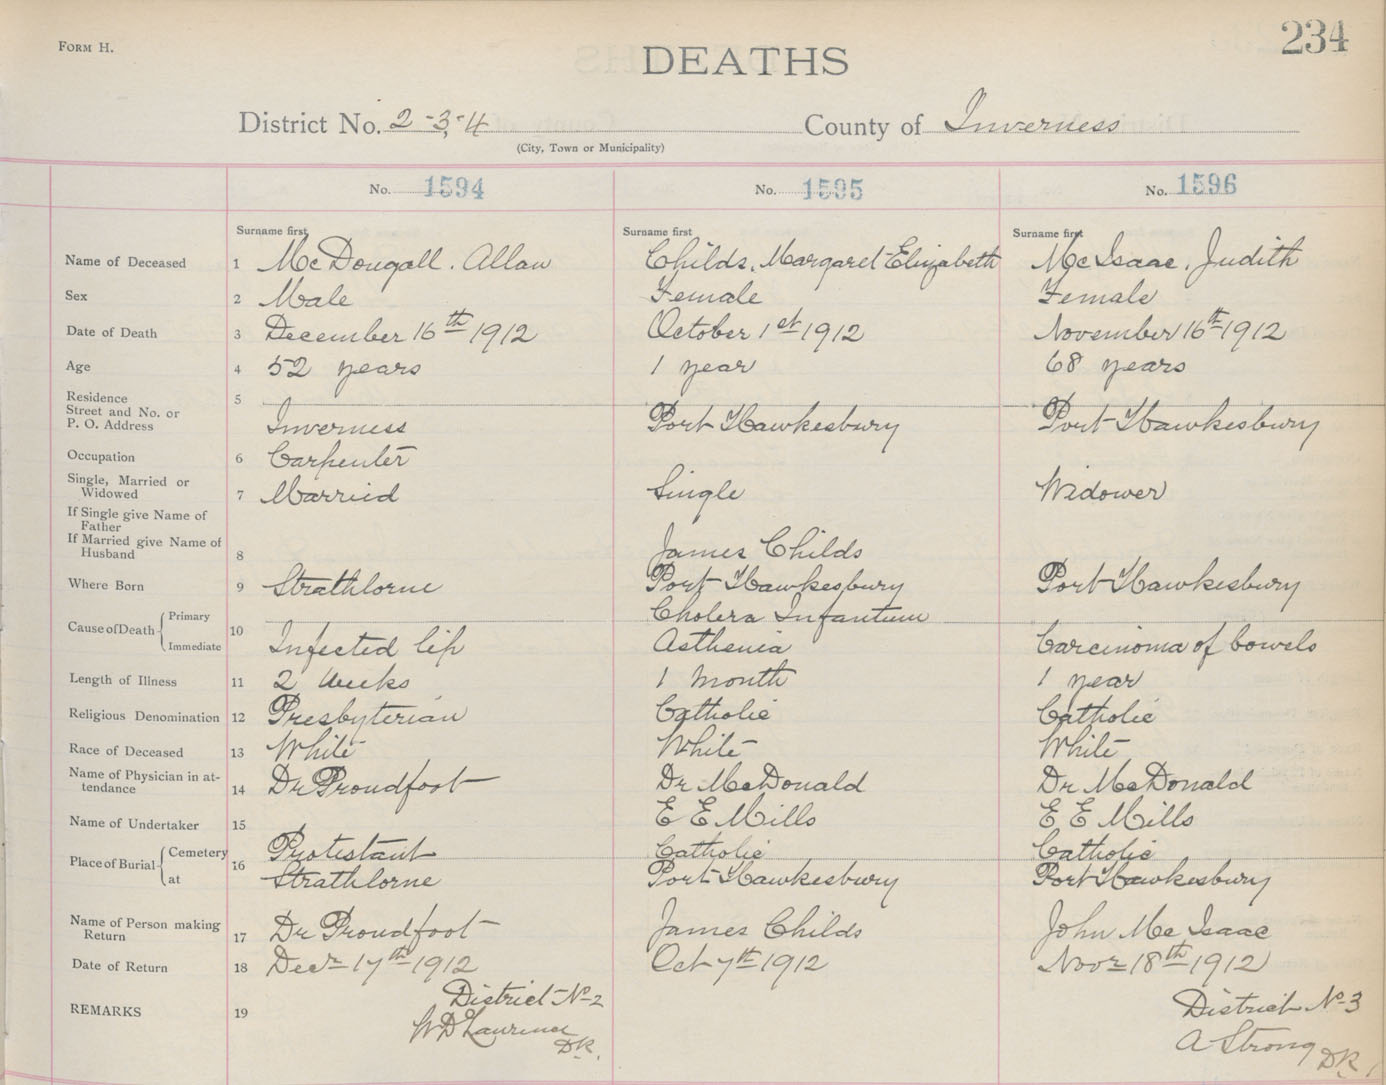 234
FORM H.
DEATHS
District No. 2-3,-4 County of Inverness
(City, Town or Municipality)
No. 1594 No. 1595 No. 1596
Surname first Surname first Surname first
Name of Deceased 1 McDougall. Allan Childs, Margaret Elizabeth McIsaac, Judith
Sex 2 Male Female Female
Date of Death 3 December 16th 1912 October 1st 1912 November 16th 1912
Age 4 52 years 1 year 68 years
Residence 5
Street and No. or
P. O. Address Inverness Port Hawkesbury Port Hawkesbury
Occupation 6 Carpenter
Single, Married or
Widowed 7 Married Single Widower
If Single give Name of
Father
If Married give Name of
Husband 8 James Childs
Where Born 9 Strathlorne Port Hawkesbury Port Hawkesbury
Cause of Death Primary 10 Cholera Infantum
Immediate Infected lip Asthenia Carcinoma of bowels
Length of Illness 11 2 weeks 1 month 1 year
Religious Denomination 12 Presbyterian Catholic Catholic
Race of Deceased 13 White White White
Name of Physician in at-
tendance 14 Dr Proudfoot Dr McDonald Dr McDonald
Name of Undertaker 15 E E Mills E E Mills
Place of Burial Cemetery 16 Protestant Catholic Catholic
at Strathlorne Port Hawkesbury Port Hawkesbury
Name of Person making
Return 17 Dr Proudfoot James Childs John McIsaac
Date of Return 18 Decr 17th 1912 Oct 7th 1912 Novr 18th 1912
REMARKS 19 District No 2 District No 3
W D Lawrence A Strong
D.R. D R.